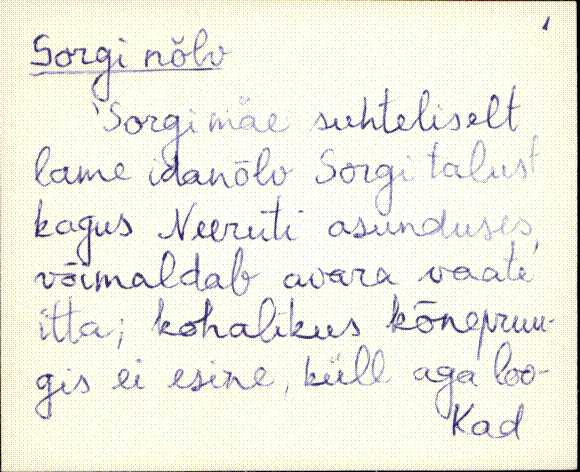 1
Sorgi nõlv
'Sorgimäe suhteliselt
lame idanõlv Sorgi talust
kagus Neeruti asunduses,
võimaldab avara vaate
itta; kohalikus kõnepruu-
gis ei esine, küll aga loo-
Kad